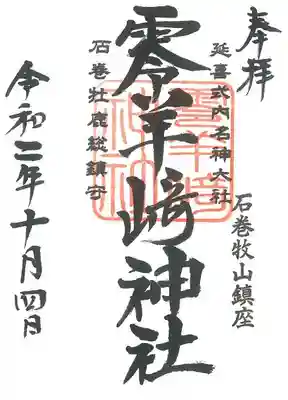 奉拝
延喜式内名神大社
石巻牧山鎮座
零羊崎神社
石巻牡鹿総鎮守
令和二年十月四日
零羊崎
神社